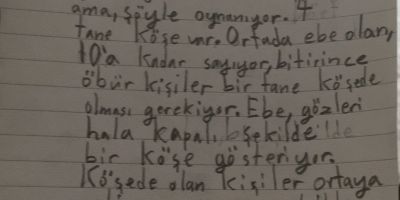 ama, şöyle oynanıyor. 4
tane köşe var. Ortada ebe olan,
10'a kadar sayıyor, bitirince
öbür kişiler bir tane köşede
olması gerekiyor. Ebe, gözleri
hala kapalı şekilde
bir köşe gösteriyor.
Köşede olan kişiler ortaya